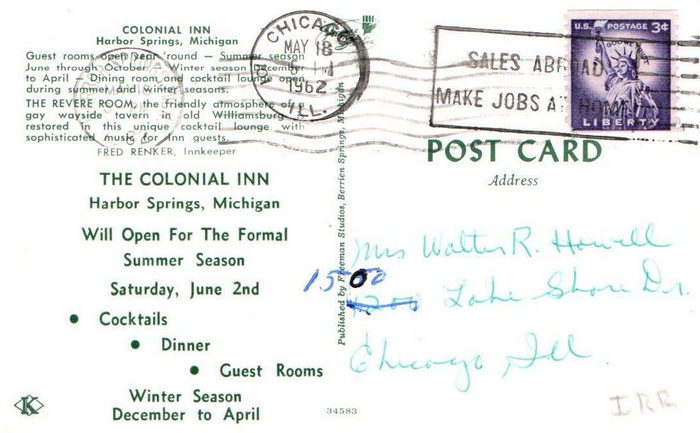 COLONIAL INN
Harbor Springs, Michigan
Guest rooms open year 'round — Summer season
June through October — Winter season December
to April — Dining room and cocktail lounge open
during summer and winter seasons.
THE REVERE ROOM, the friendly atmosphere of a
gay wayside tavern in old Williamsburg is
restored in this unique cocktail lounge with
sophisticated music for inn guests.
FRED RENKER, Innkeeper
THE COLONIAL INN
Harbor Springs, Michigan
Will Open For The Formal
Summer Season
Saturday, June 2nd
• Cocktails
• Dinner
• Guest Rooms
Winter Season
December to April
K
34583
Published by Freeman Studios, Berrien Springs, Michigan
CHICAGO
MAY 18
1962
ILL.
SALES ABROAD
MAKE JOBS AT HOME
U.S. POSTAGE 3¢
LIBERTY
POST CARD
Address
Mrs Walter R. Howell
1500
1200 Lake Shore Dr.
Chicago Ill.
IRR